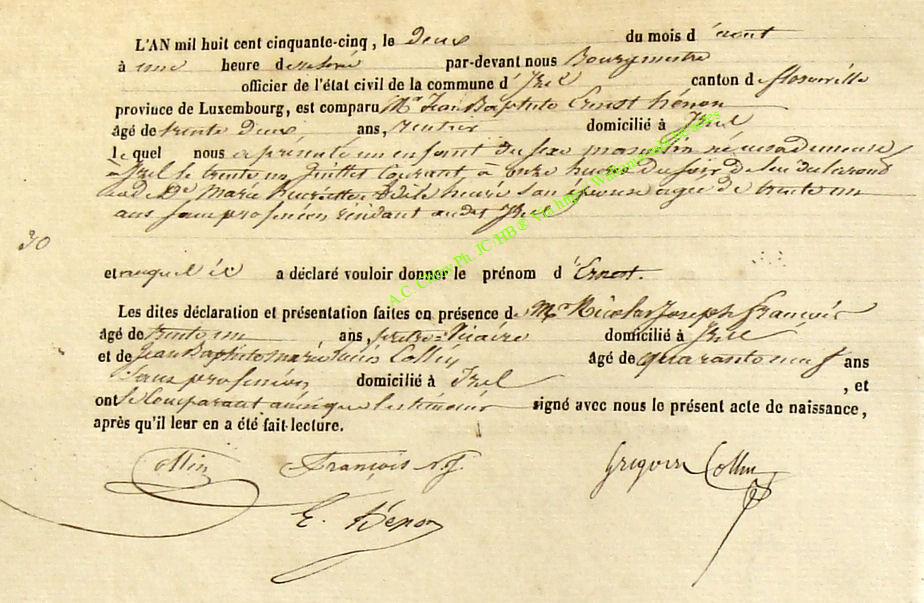 L'AN mil huit cent cinquante-cinq, le Deux du mois d'Aout
à une heure de relevé par-devant nous Bourgmestre
officier de l'état civil de la commune d'Izel canton de florenville
province de Luxembourg, est comparu Mr Jean Baptiste Ernest hénon
âgé de trente deux ans, rentier domicilié à Izel
lequel nous a présenté un enfant du sexe masculin né
à Izel le trente un juillet courant à onze heures du soir de lui déclarant
et de De Marie henriette son épouse agée de trente un
ans sans profession résidant audit Izel
30
et auquel il a déclaré vouloir donner le prénom d'Ernest.
Les dites déclaration et présentation faites en présence de Mr Nicolas Joseph François
âgé de trente un ans, prêtre-Vicaire domicilié à Izel
et de Jean Baptiste marie Collin âgé de quarante neuf ans
Sans profession domicilié à Izel , et
ont le Comparant ainsi que les témoins signé avec nous le présent acte de naissance,
après qu'il leur en a été fait lecture.
Collin François N.J. Grégoire Collin
E. hénon
A.C. Ph. JC HB ®